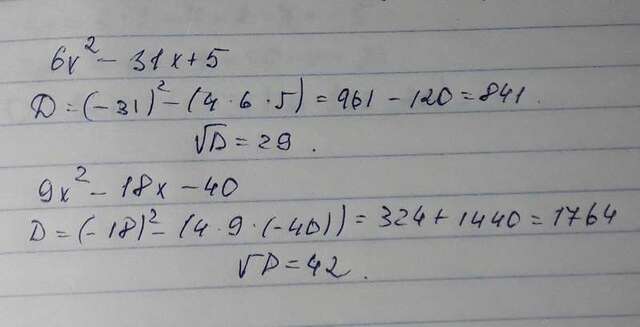 6x² - 31x + 5
D = (-31)² - (4 · 6 · 5) = 961 - 120 = 841.
√D = 29.
9x² - 18x - 40
D = (-18)² - (4 · 9 · (-40)) = 324 + 1440 = 1764
√D = 42.